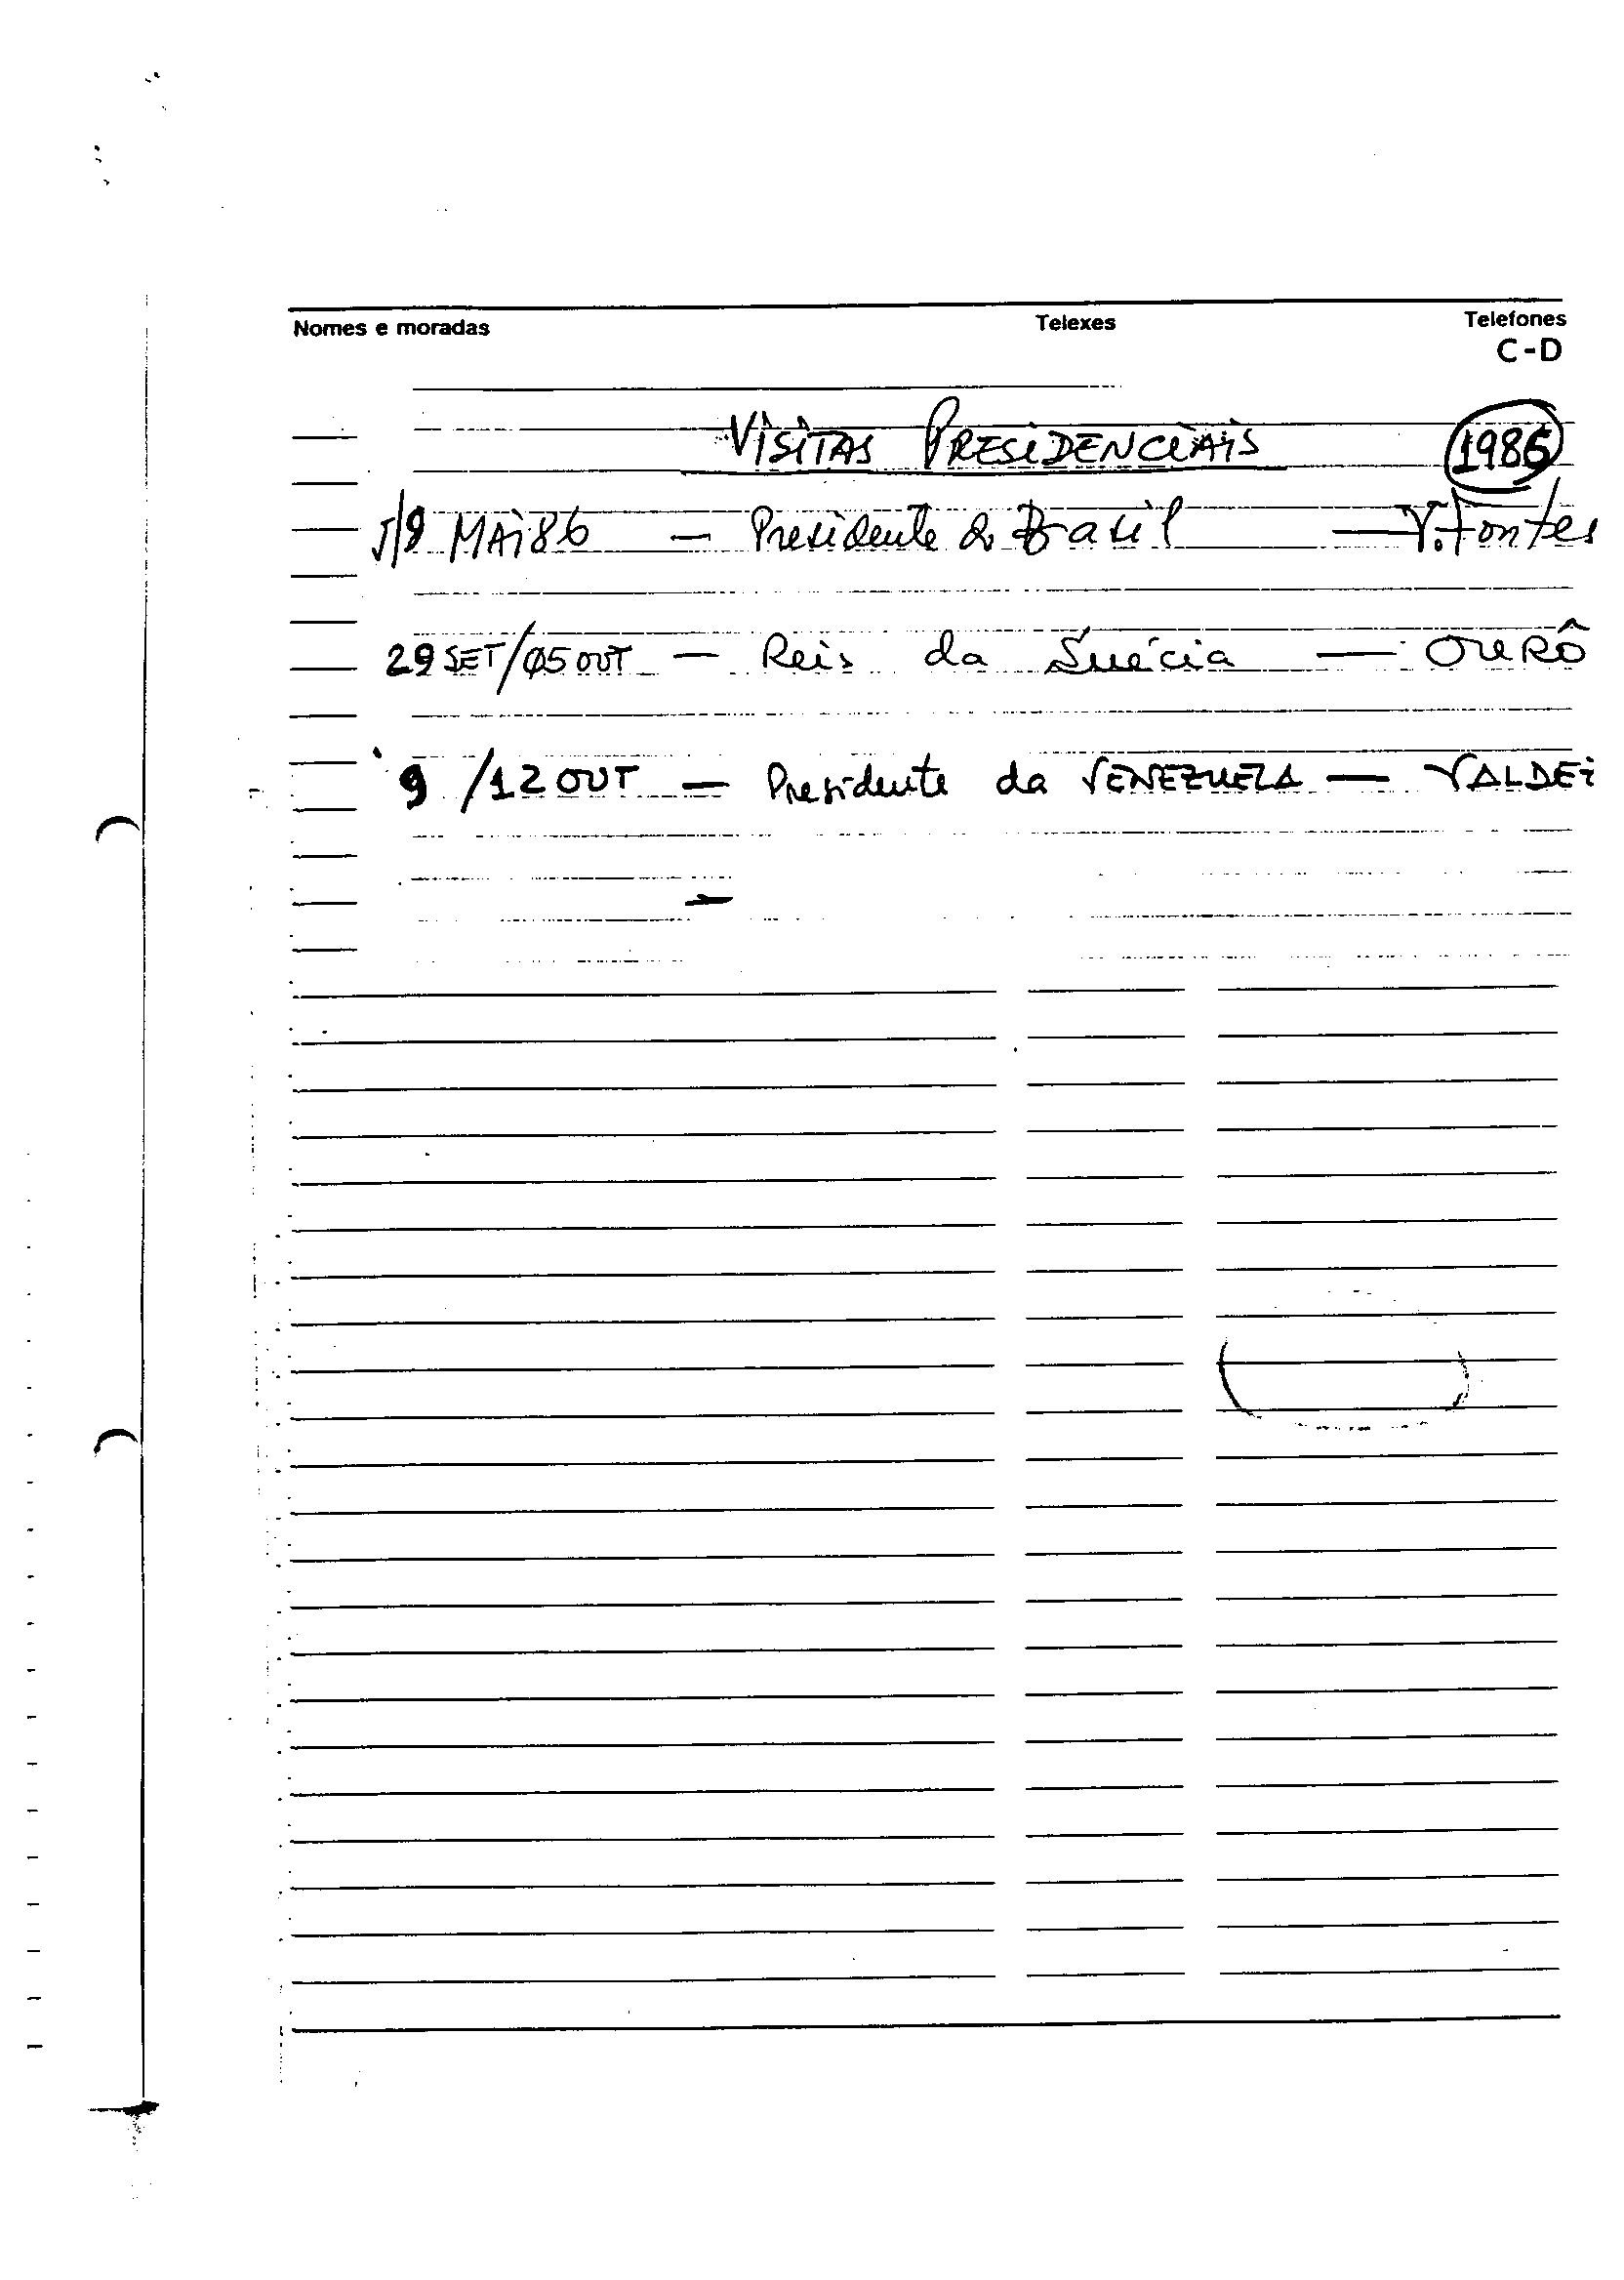 Nomes e moradas Telexes Telefones
C-D
VISITAS PRESIDENCIAIS 1986
5/9 MAI 86 — Presidente do Brasil — V. Fontes
29 SET/05 OUT — Reis da Suécia —
9 /12 OUT — Presidente da VENEZUELA — VALDEI